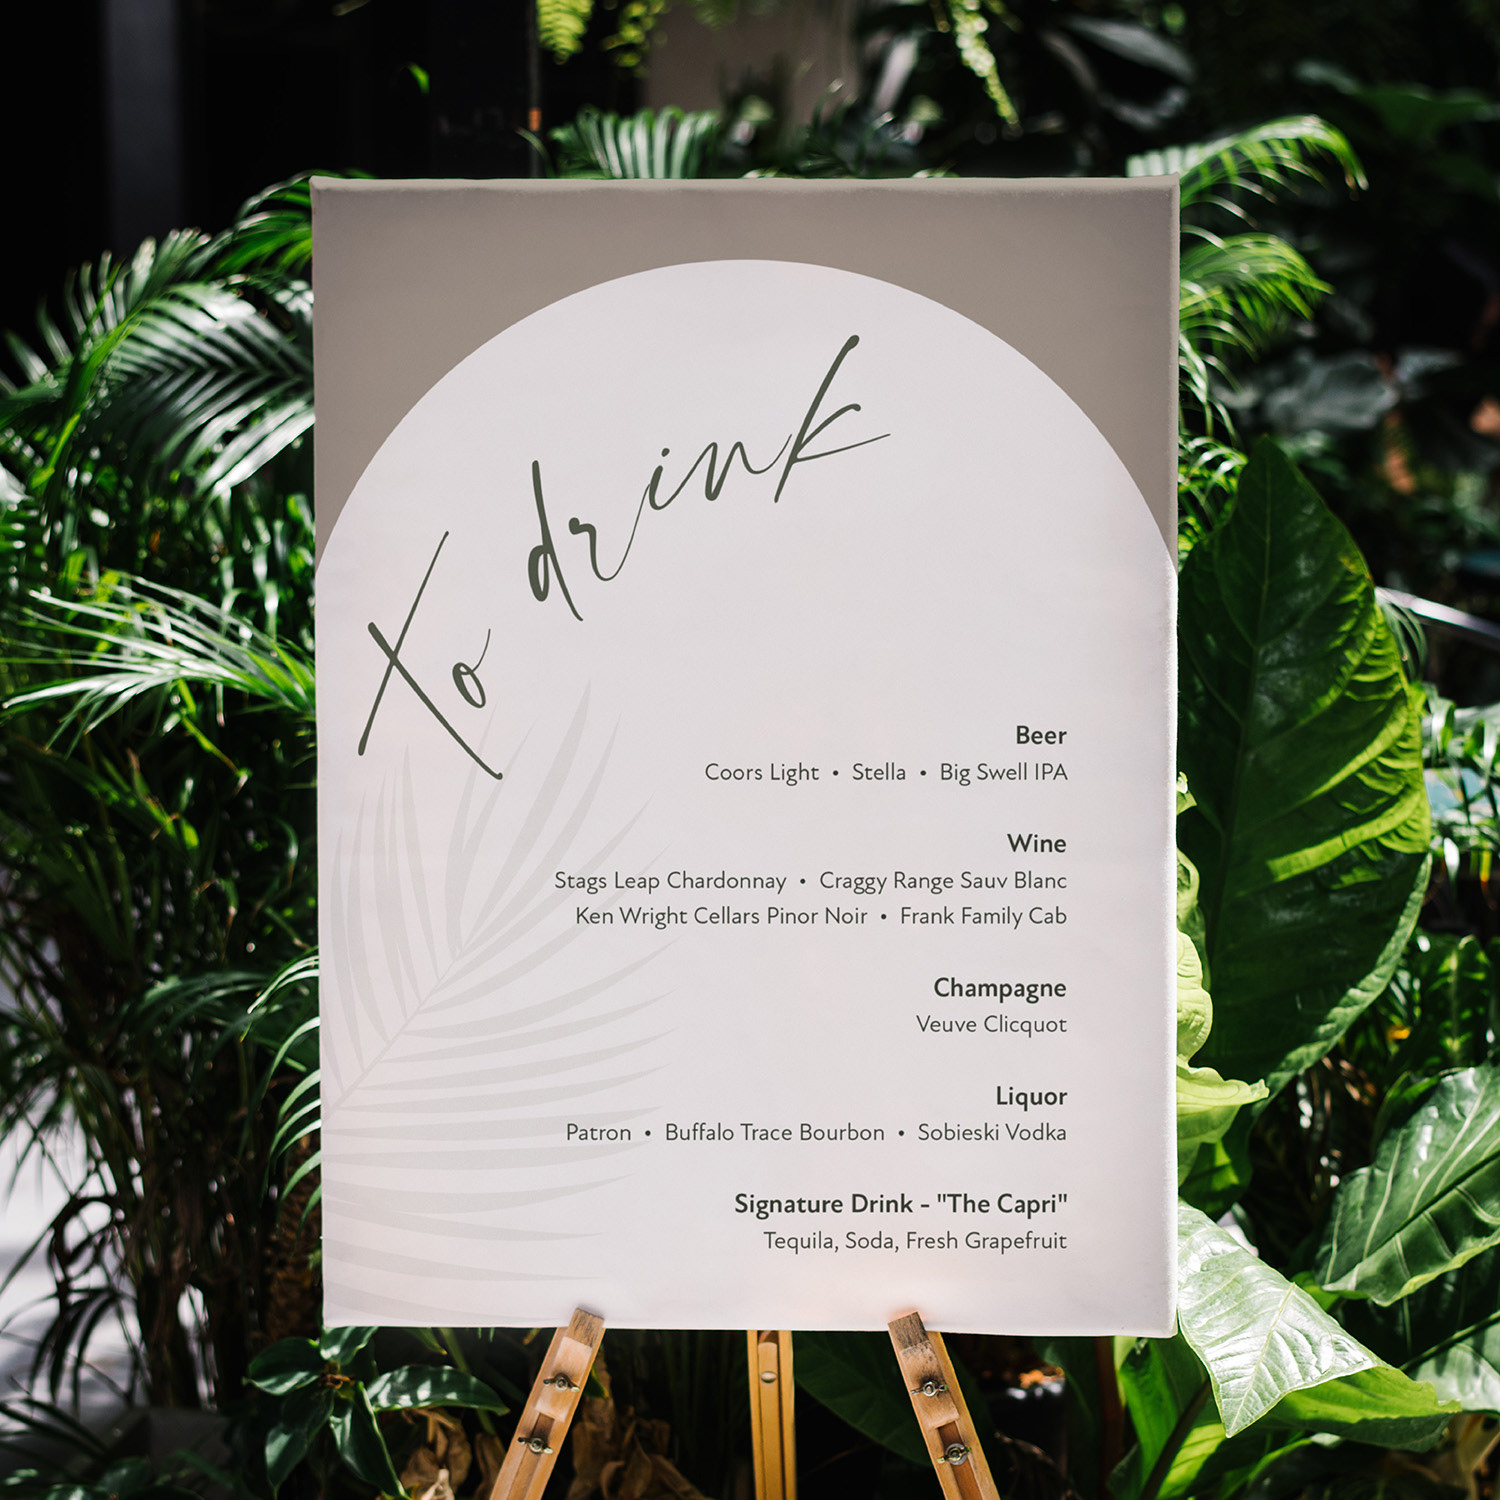 To drink
Beer
Coors Light • Stella • Big Swell IPA
Wine
Stags Leap Chardonnay • Craggy Range Sauv Blanc
Ken Wright Cellars Pinor Noir • Frank Family Cab
Champagne
Veuve Clicquot
Liquor
Patron • Buffalo Trace Bourbon • Sobieski Vodka
Signature Drink - "The Capri"
Tequila, Soda, Fresh Grapefruit